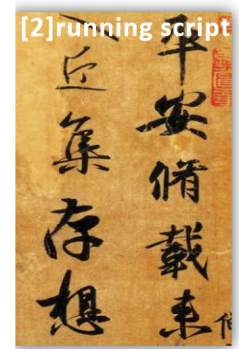 [2]running script
平安脩載来
近集存想